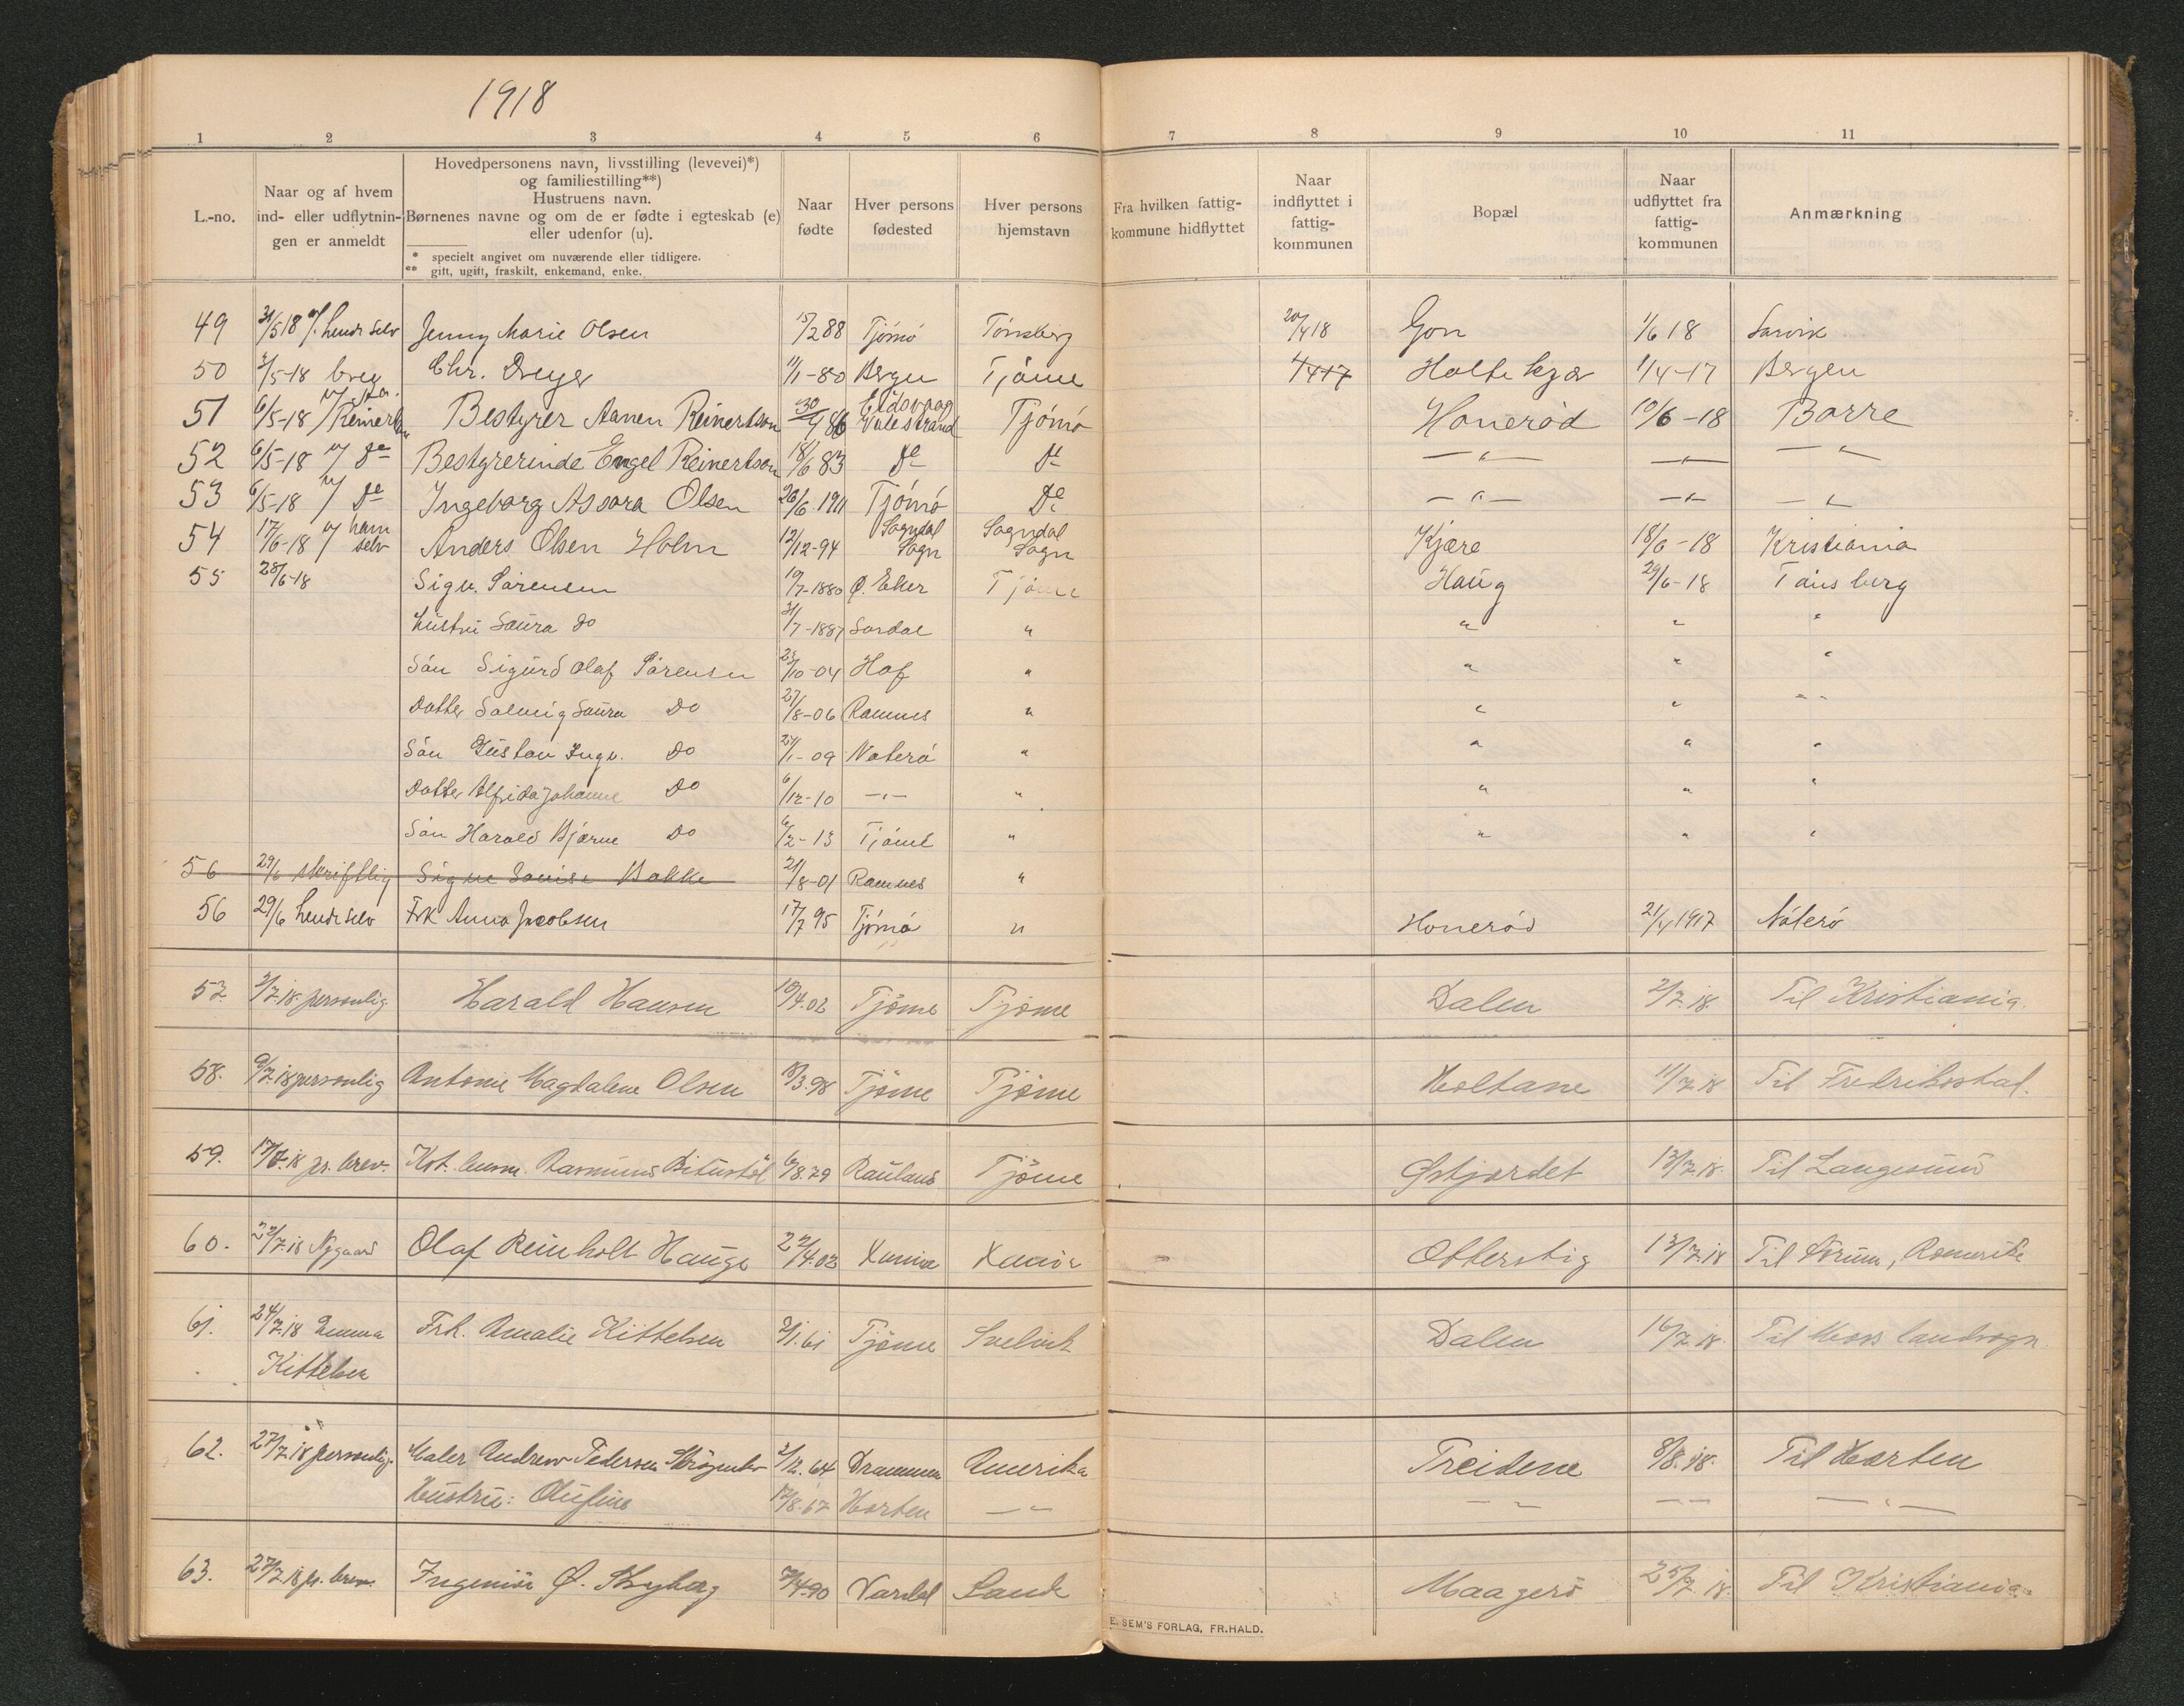 1918
1 2 3 4 5 6 7 8 9 10 11
L.-no.
Naar og af hvem
ind- eller udflytnin-
gen er anmeldt
Hovedpersonens navn, livsstilling (levevei)*)
og familiestilling**)
Hustruens navn.
Børnenes navne og om de er fødte i egteskab (e)
eller udenfor (u).
* specielt angivet om nuværende eller tidligere.
** gift, ugift, fraskilt, enkemand, enke.
Naar
fødte
Hver persons
fødested
Hver persons
hjemstavn
Fra hvilken fattig-
kommune hidflyttet
Naar
indflyttet i
fattig-
kommunen
Bopæl
Naar
udflyttet fra
fattig-
kommunen
Anmærkning
49 31/5 18 Jenny Marie Olsen 15/2 88 Tjömö Tönsberg 20/4 18 Gon 1/6 18 Larvik
50 3/5-18 brev Chr. Dreyer 11/1-80 Bergen Tjöme 1/4 17 Holtekjær 1/4-17 Bergen
51 6/5-18 Bestyrer Aanen Reinertson 86 Eidsvaag Valestrand Tjömö Honerød 10/6-18 Borre
52 6/5-18 Bestyrerinde Engel Reinertson 18/6 83 De De — " — — " — — " —
53 6/5-18 De Ingeborg Assora Olsen 26/6 1911 Tjömö De — " — — " — — " —
54 17/6-18 ham selv Anders Olsen Holm 12/12-94 Sogndal Sogn Sogndal Sogn Kjære 18/6-18 Kristiania
55 28/6-18 Sigv. Sörensen 19/7-1880 Ø. Eker Tjöme Haug 29/6-18 Tönsberg
Hustru Laura Do 31/7-1887 " " " "
Sön Sigurd Olaf Sörensen 23/10-04 Hof " " " "
Datter Solveig Laura Do 27/8-06 Ramnes " " " "
Sön Gustav Ingv. Do 27/1-09 Nöterö " " " "
Datter Alfrida Johanne Do 6/12-10 — " — " " " "
Sön Harald Bjarne Do 6/2-13 Tjöme " " " "
56 29/6 skriftlig Signe Louise Bakke 21/8-01 Ramnes "
56 29/6 hende selv Frk Anna Jacobsen 17/7 95 Tjömö " Honerød 21/4 1917 Nöterö
57 2/7.18. personlig Harald Hansen 19/4.02 Tjöme Tjöme Dalen 2/7.18. Til Kristiania.
58. 9/7.18 personlig Antonie Magdalene Olsen 18/3.98 Tjöme Tjöme Holtane 11/7.18 Til Fredrikstad.
59. 17/7.18 pr. brev. Rasmus 6/8.79 Rauland Tjöme Østjordet 13/7.18. Til Langesund
60. 22/7.18 Nygaard Olaf Reinholt Hauge 22/4.02 Otterstig 13/7.18 Til Sörum, Romerike
61. 24/7.18 Emma Frk. Amalie Kittelsen 2/1.61 Tjöme Svelvik Dalen 16/7.18. Til Moss landsogn.
Kittelsen
62. 27/7.18 personlig. Maler Andrew Pedersen 3/12.64 Drammen Amerika Treidene 8/8.18. Til Horten
Hustru: Olufine 12/8.67 Horten — " — — " — — " — — " —
63. 27/7.18 pr. brev. Ingeniör Ø. Nyborg 7/4.90 Vardal Sande Maagerö 25/7.18. Til Kristiania.
E. SEM'S FORLAG, FR.HALD.